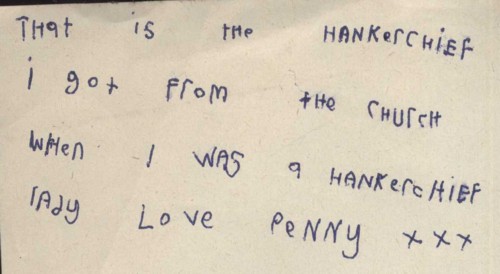 THat is the HANKerCHiEF
i got From the CHUrCH
WHen I WAS a HANKerCHiEF
lady LOVe PeNNY xxx